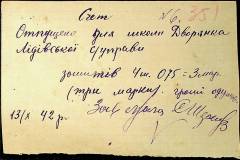 Счет №6.
Отпущено для школи Дворянка
Лідівської Управи
зошитів 4 шт. 075 = 3 мар.
(три марки) гроші одержав
13/X 42 р.